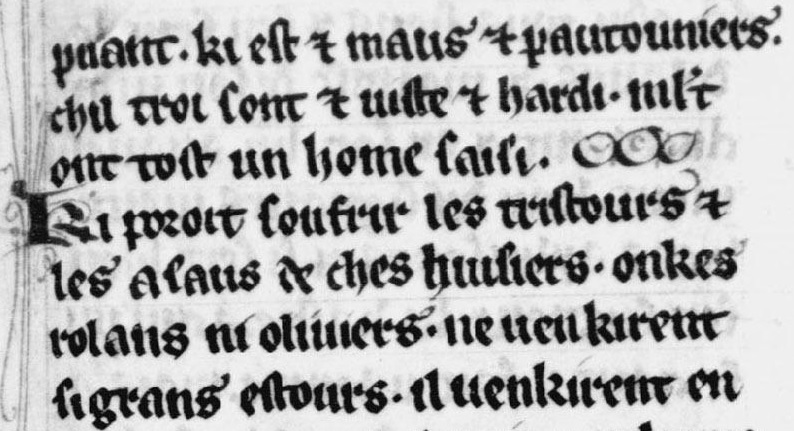 puant. ki est ⁊ maus ⁊ pautouniers.
chil troi sont ⁊ uiste ⁊ hardi. mlt
ont tost un home saisi.
Ki poroit soufrir les tristours ⁊
les asaus de ches huisiers. onkes
rolans ni oliuiers. ne uenkirent
si grans estours. il uenkirent en